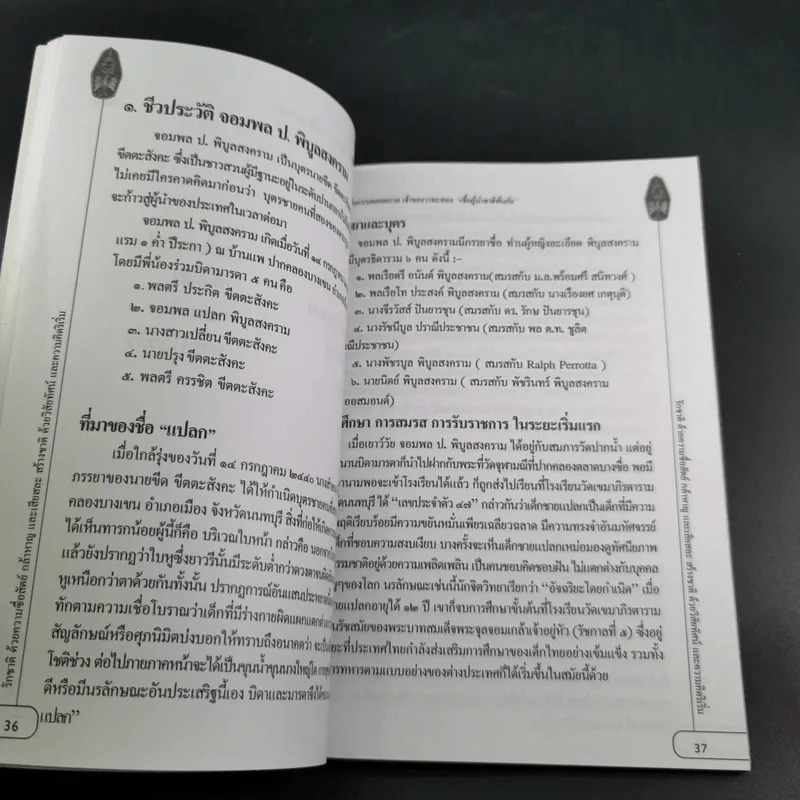 ๑. ชีวประวัติ จอมพล ป. พิบูลสงคราม
จอมพล ป. พิบูลสงคราม เป็นบุตรนายขีด
ขีตตะสังคะ ซึ่งเป็นชาวสวนผู้มีฐานะอยู่ในระดับปานกลาง
ไม่เคยมีใครคาดคิดมาก่อนว่า บุตรชายคนที่สองของ
จะก้าวสู่ผู้นำของประเทศในเวลาต่อมา
จอมพล ป. พิบูลสงคราม เกิดเมื่อวันที่ ๑๔
แรม ๑ ค่ำ ปีระกา) ณ บ้านแพ ปากคลองบางเขน
โดยมีพี่น้องร่วมบิดามารดา ๕ คน คือ
๑. พลตรี ประกิต ขีตตะสังคะ
๒. จอมพล แปลก พิบูลสงคราม
๓. นางสาวเปลี่ยน ขีตตะสังคะ
๔. นายปรุง ขีตตะสังคะ
๕. พลตรี ครรชิต ขีตตะสังคะ
ที่มาของชื่อ “แปลก”
เมื่อใกล้รุ่งของวันที่ ๑๔ กรกฎาคม ๒๔๔๐
ภรรยาของนายขีด ขีตตะสังคะ ได้ให้กำเนิดบุตรชายคน
คลองบางเขน อำเภอเมือง จังหวัดนนทบุรี สิ่งที่ก่อให้เกิด
ได้เห็นทารกน้อยผู้นี้ก็คือ บริเวณใบหน้า กล่าวคือ
แล้วยังปรากฏว่าใบหูซึ่งยาวรีนั้นมีระดับต่ำกว่าดวงตา
หูเหนือกว่าตาด้วยกันทั้งนั้น ปรากฏการณ์อันแสน
ทักตามความเชื่อโบราณว่าเด็กที่มีร่างกายผิดแผกแตกต่าง
สัญลักษณ์หรือศุภนิมิตบ่งบอกให้ทราบถึงอนาคตว่า
โชติช่วง ต่อไปภายภาคหน้าจะได้เป็นขุนน้ำขุนนางใหญ่โต
ดีหรือมีนรลักษณะอันประเสริฐนี้เอง บิดาและมารดาจึง
แปลก”
รักชาติ ด้วยความซื่อสัตย์ กล้าหาญ และเสียสละ สร้างชาติ ด้วยวิสัยทัศน์ และความคิดริเริ่ม
36
ยาและบุตร
จอมพล ป. พิบูลสงครามมีภรรยาชื่อ ท่านผู้หญิงละเอียด พิบูลสงคราม
มีบุตรธิดารวม ๖ คน ดังนี้ :-
๑. พลเรือตรี อนันต์ พิบูลสงคราม(สมรสกับ ม.ล.พร้อมศรี สนิทวงศ์ )
๒. พลเรือโท ประสงค์ พิบูลสงคราม (สมรสกับ นางเรืองยศ เกตุนุติ)
๓. นางจีรวัสส์ ปันยารชุน (สมรสกับ ดร. รักษ ปันยารชุน)
๔. นางรัชนีบูล ปราณีประชาชน (สมรสกับ พล ต.ท. ชูลิต
ณีประชาชน)
๕. นางพัชรบูล พิบูลสงคราม ( สมรสกับ Ralph Perrotta )
๖. นายนิตย์ พิบูลสงคราม ( สมรสกับ พัชรินทร์ พิบูลสงคราม
ออสมอนด์)
ศึกษา การสมรส การรับราชการ ในระยะเริ่มแรก
เมื่อเยาว์วัย จอมพล ป. พิบูลสงคราม ได้อยู่กับสมภารวัดปากน้ำ แต่อยู่
นานบิดามารดาก็นำไปฝากกับพระที่วัดจุฬามณีที่ปากคลองตลาดบางซื่อ พอมี
านามพอจะเข้าโรงเรียนได้แล้ว ก็ถูกส่งไปเรียนที่โรงเรียนวัดเขมาภิรตาราม
นนทบุรี ได้ "เลขประจำตัว ๔๗" กล่าวกันว่าเด็กชายแปลกเป็นเด็กที่มีความ
พฤติเรียบร้อยมีความขยันหมั่นเพียรเฉลียวฉลาด มีความทรงจำอันมหัศจรรย์
ด็กที่ชอบความสงบเงียบ บางครั้งจะเห็นเด็กชายแปลกเหม่อมองดูทัศนียภาพ
รรมชาติอยู่ด้วยความเพลิดเพลิน เป็นคนชอบคิดชอบฝัน ไม่แตกต่างกับบุคคล
ๆของโลก นรลักษณะเช่นนี้นักจิตวิทยาเรียกว่า "อัจฉริยะโดยกำเนิด" เมื่อ
ายแปลกอายุได้ ๑๒ ปี เขาก็จบการศึกษาขั้นต้นที่โรงเรียนวัดเขมาภิรตาราม
รัชสมัยของพระบาทสมเด็จพระจุลจอมเกล้าเจ้าอยู่หัว (รัชกาลที่ ๕) ซึ่งอยู่
ยะที่ประเทศไทยกำลังส่งเสริมการศึกษาของเด็กไทยอย่างเข้มแข็ง รวมทั้ง
การทหารตามแบบอย่างของต่างประเทศก็ได้เริ่มขึ้นในสมัยนี้ด้วย
รักชาติ ด้วยความซื่อสัตย์ กล้าหาญ และเสียสละ สร้างชาติ ด้วยวิสัยทัศน์ และความคิดริเริ่ม
37